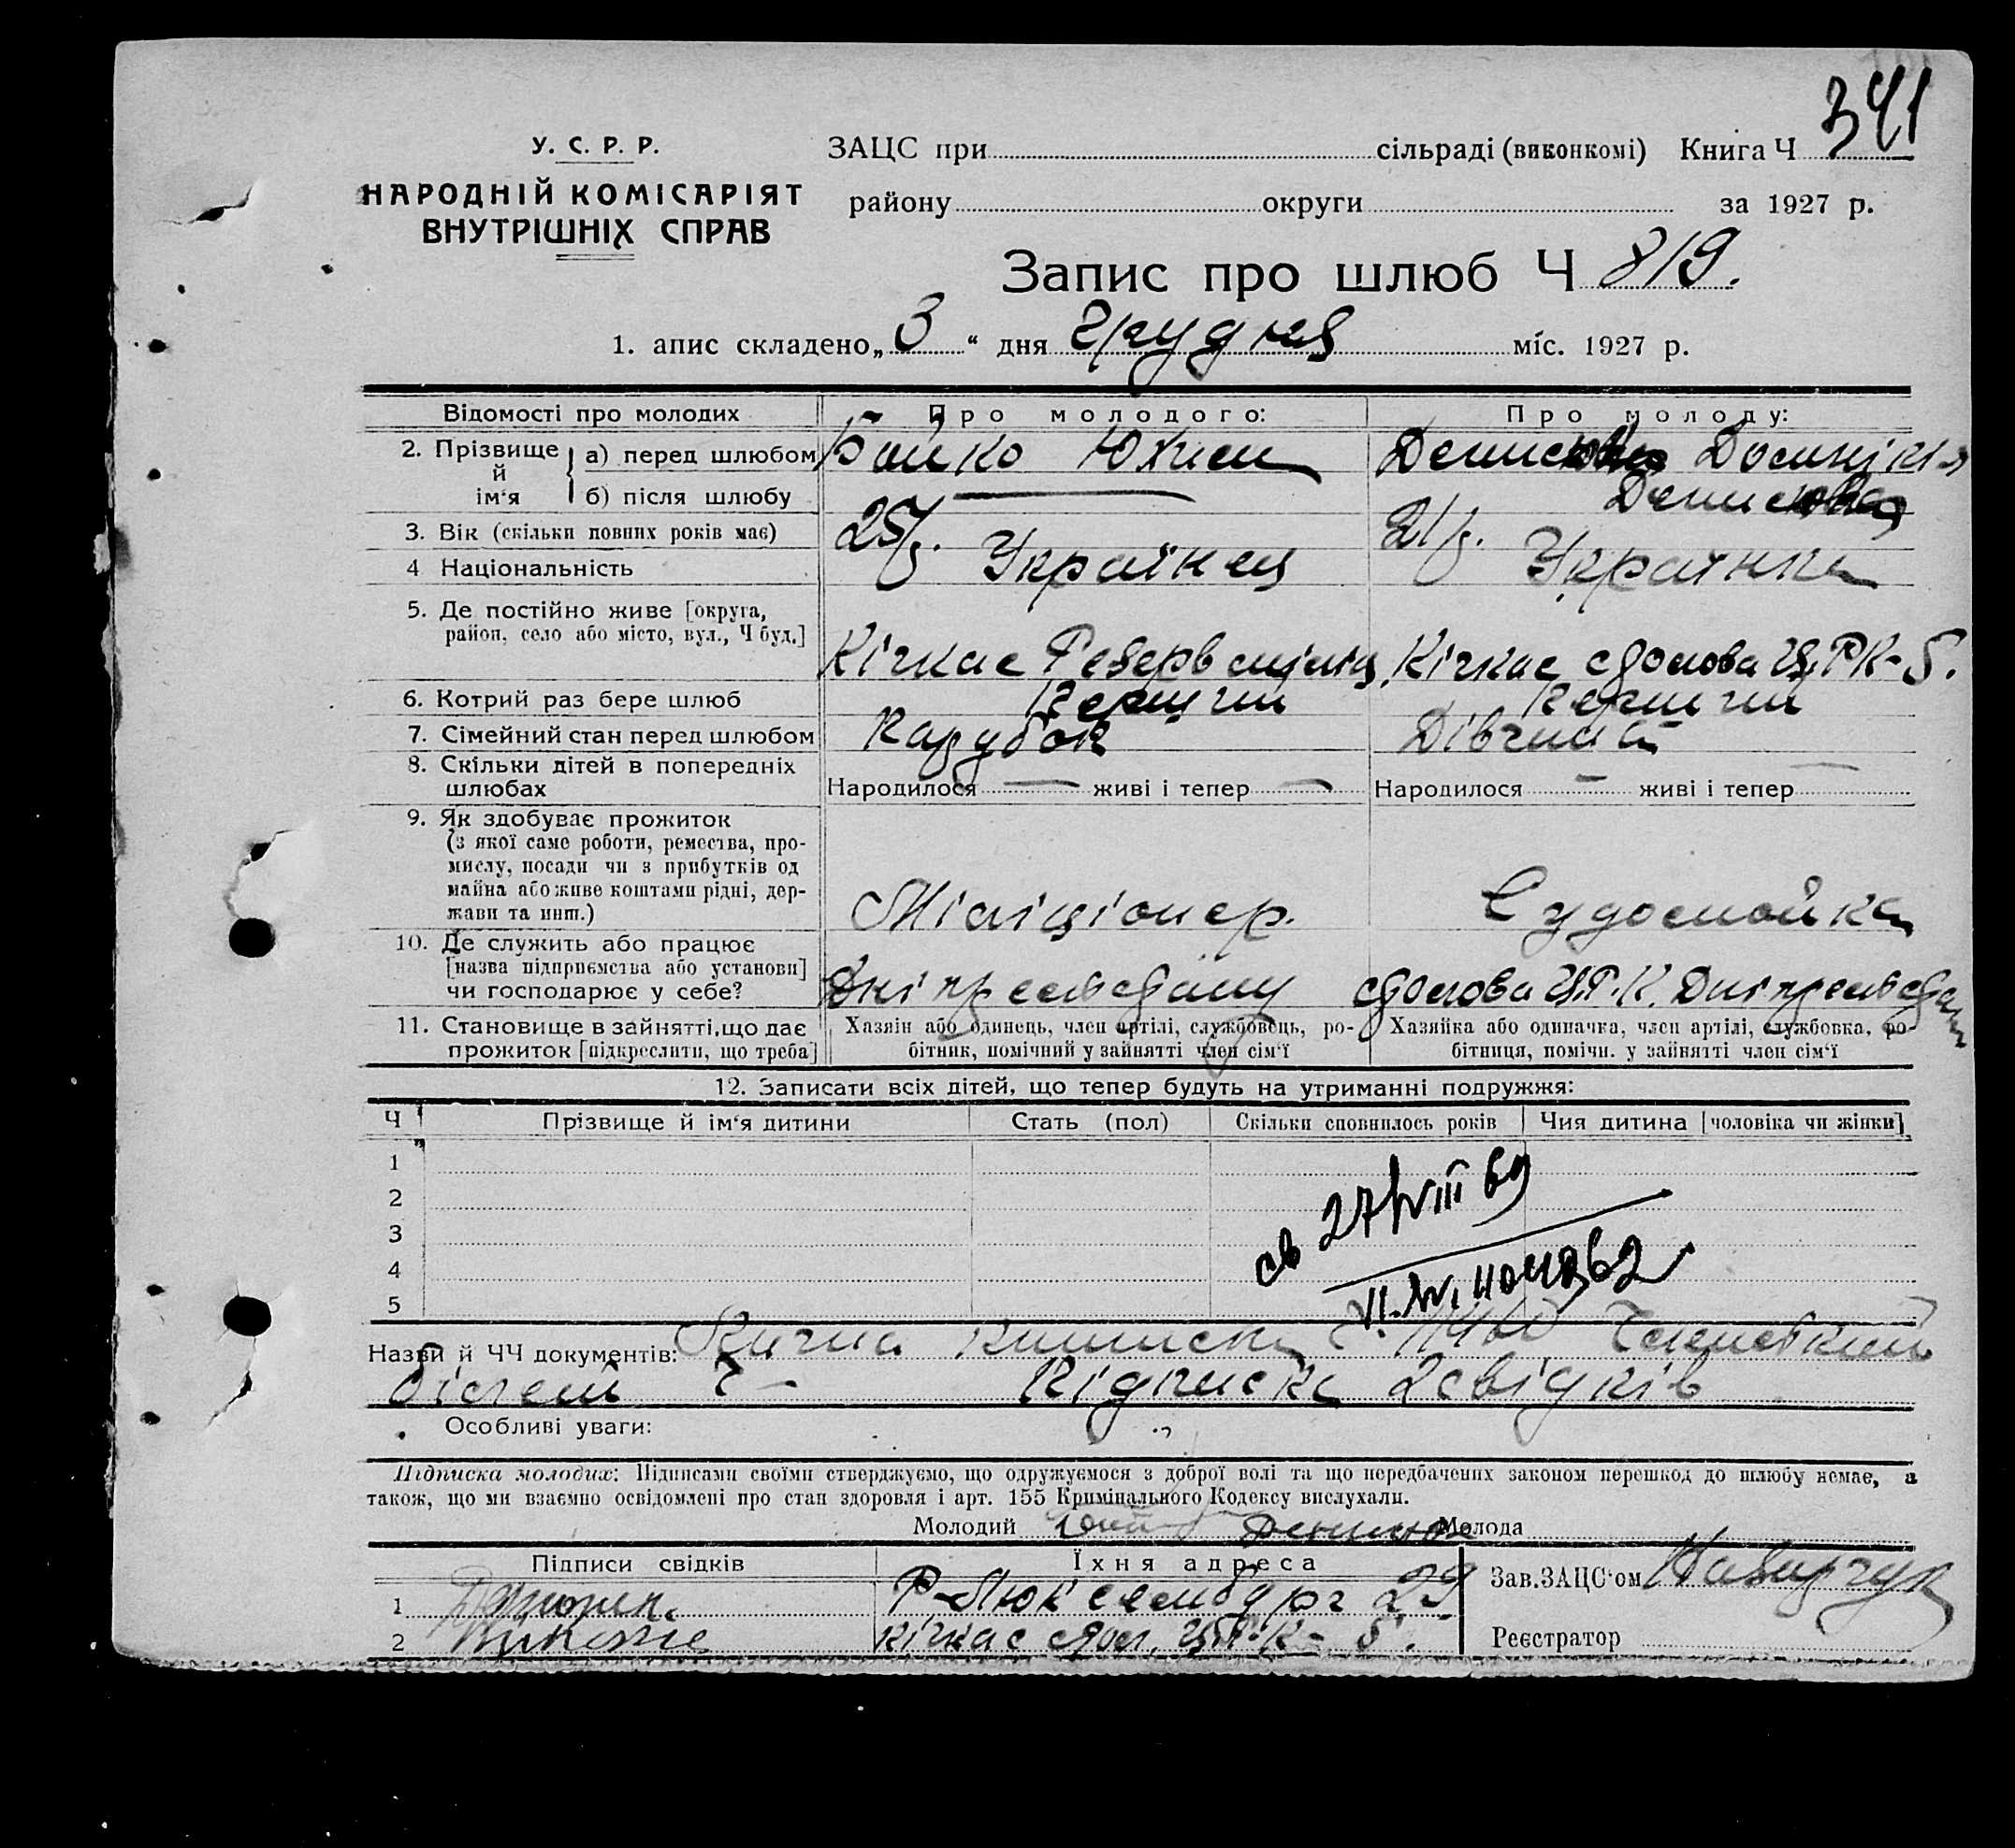 341
У. С. Р. Р.
НАРОДНІЙ КОМІСАРІЯТ
ВНУТРІШНІХ СПРАВ
ЗАЦС при сільраді (виконкомі) Книга Ч
району округи за 1927 р.
Запис про шлюб Ч 819.
1. апис складено „ 3 “ дня Грудня міс. 1927 р.
Відомості про молодих Про молодого: Про молоду:
2. Прізвище й ім'я
а) перед шлюбом Бойко Юхим Денисюк Домнікія
б) після шлюбу — Денисюк
3. Вік (скільки повних років має) 25 р. 21 р.
4 Національність Українец Украінка
5. Де постійно живе [округа,
район, село або місто, вул., Ч буд.]
Кічкас Резерв міліц. Кічкас їдолова ЦРК-5.
6. Котрий раз бере шлюб Перший Перший
7. Сімейний стан перед шлюбом Парубок Дівчина
8. Скільки дітей в попередніх
шлюбах
Народилося — живі і тепер — Народилося — живі і тепер —
9. Як здобуває прожиток
(з якої саме роботи, ремества, про-
мислу, посади чи з прибутків од
майна або живе коштами рідні, дер-
жави та инш.)
Міліціонер. Судомойка
10. Де служить або працює
[назва підприємства або установи]
чи господарює у себе?
Дніпрельстану їдолова Ц.Р.К. Дніпрельстан
11. Становище в зайнятті, що дає
прожиток [підкреслити, що треба]
Хазяїн або одинець, член артілі, службовець, ро-
бітник, помічний у зайнятті член сім'ї
Хазяйка або одиначка, член артілі, службовка, ро-
бітниця, помічн. у зайнятті член сім'ї
12. Записати всіх дітей, що тепер будуть на утриманні подружжя:
Ч Прізвище й ім'я дитини Стать (пол) Скільки сповнилось років Чия дитина [чоловіка чи жінки]
1
2
3
4
5
св 27/VIII 69
Назви й ЧЧ документів:
білет ч — Підписка 2 свідків
Особливі уваги:
Підписка молодих: Підписами своїми стверджуємо, що одружуємося з доброї волі та що передбачених законом перешкод до шлюбу немає, а
також, що ми взаємно освідомлені про стан здоровля і арт. 155 Кримінального Кодексу вислухали.
Молодий Денисюк Молода
Підписи свідків Їхня адреса
1 Р-Люксембург 29
2 Кічкас їдол. ЦРК-5.
Зав. ЗАЦС'ом
Реєстратор